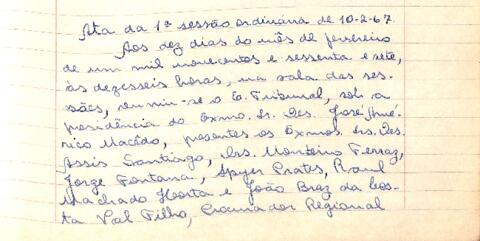 Ata da 1ª sessão ordinária de 10-2-67.
Aos dez dias do mês de fevereiro
de um mil novecentos e sessenta e sete,
às dezesseis horas, na sala das ses-
sões, reuniu-se o E. Tribunal, sob a
presidência do Exmo. Sr. Des. José Amé-
rico Macêdo, presentes os Exmos. Srs. Des.
Assis Santiago, Drs. Monteiro Ferraz,
Jorge Fontana, Spyer Prates, Raul
Machado Horta e João Braz da Cos-
ta Val Filho, Procurador Regional